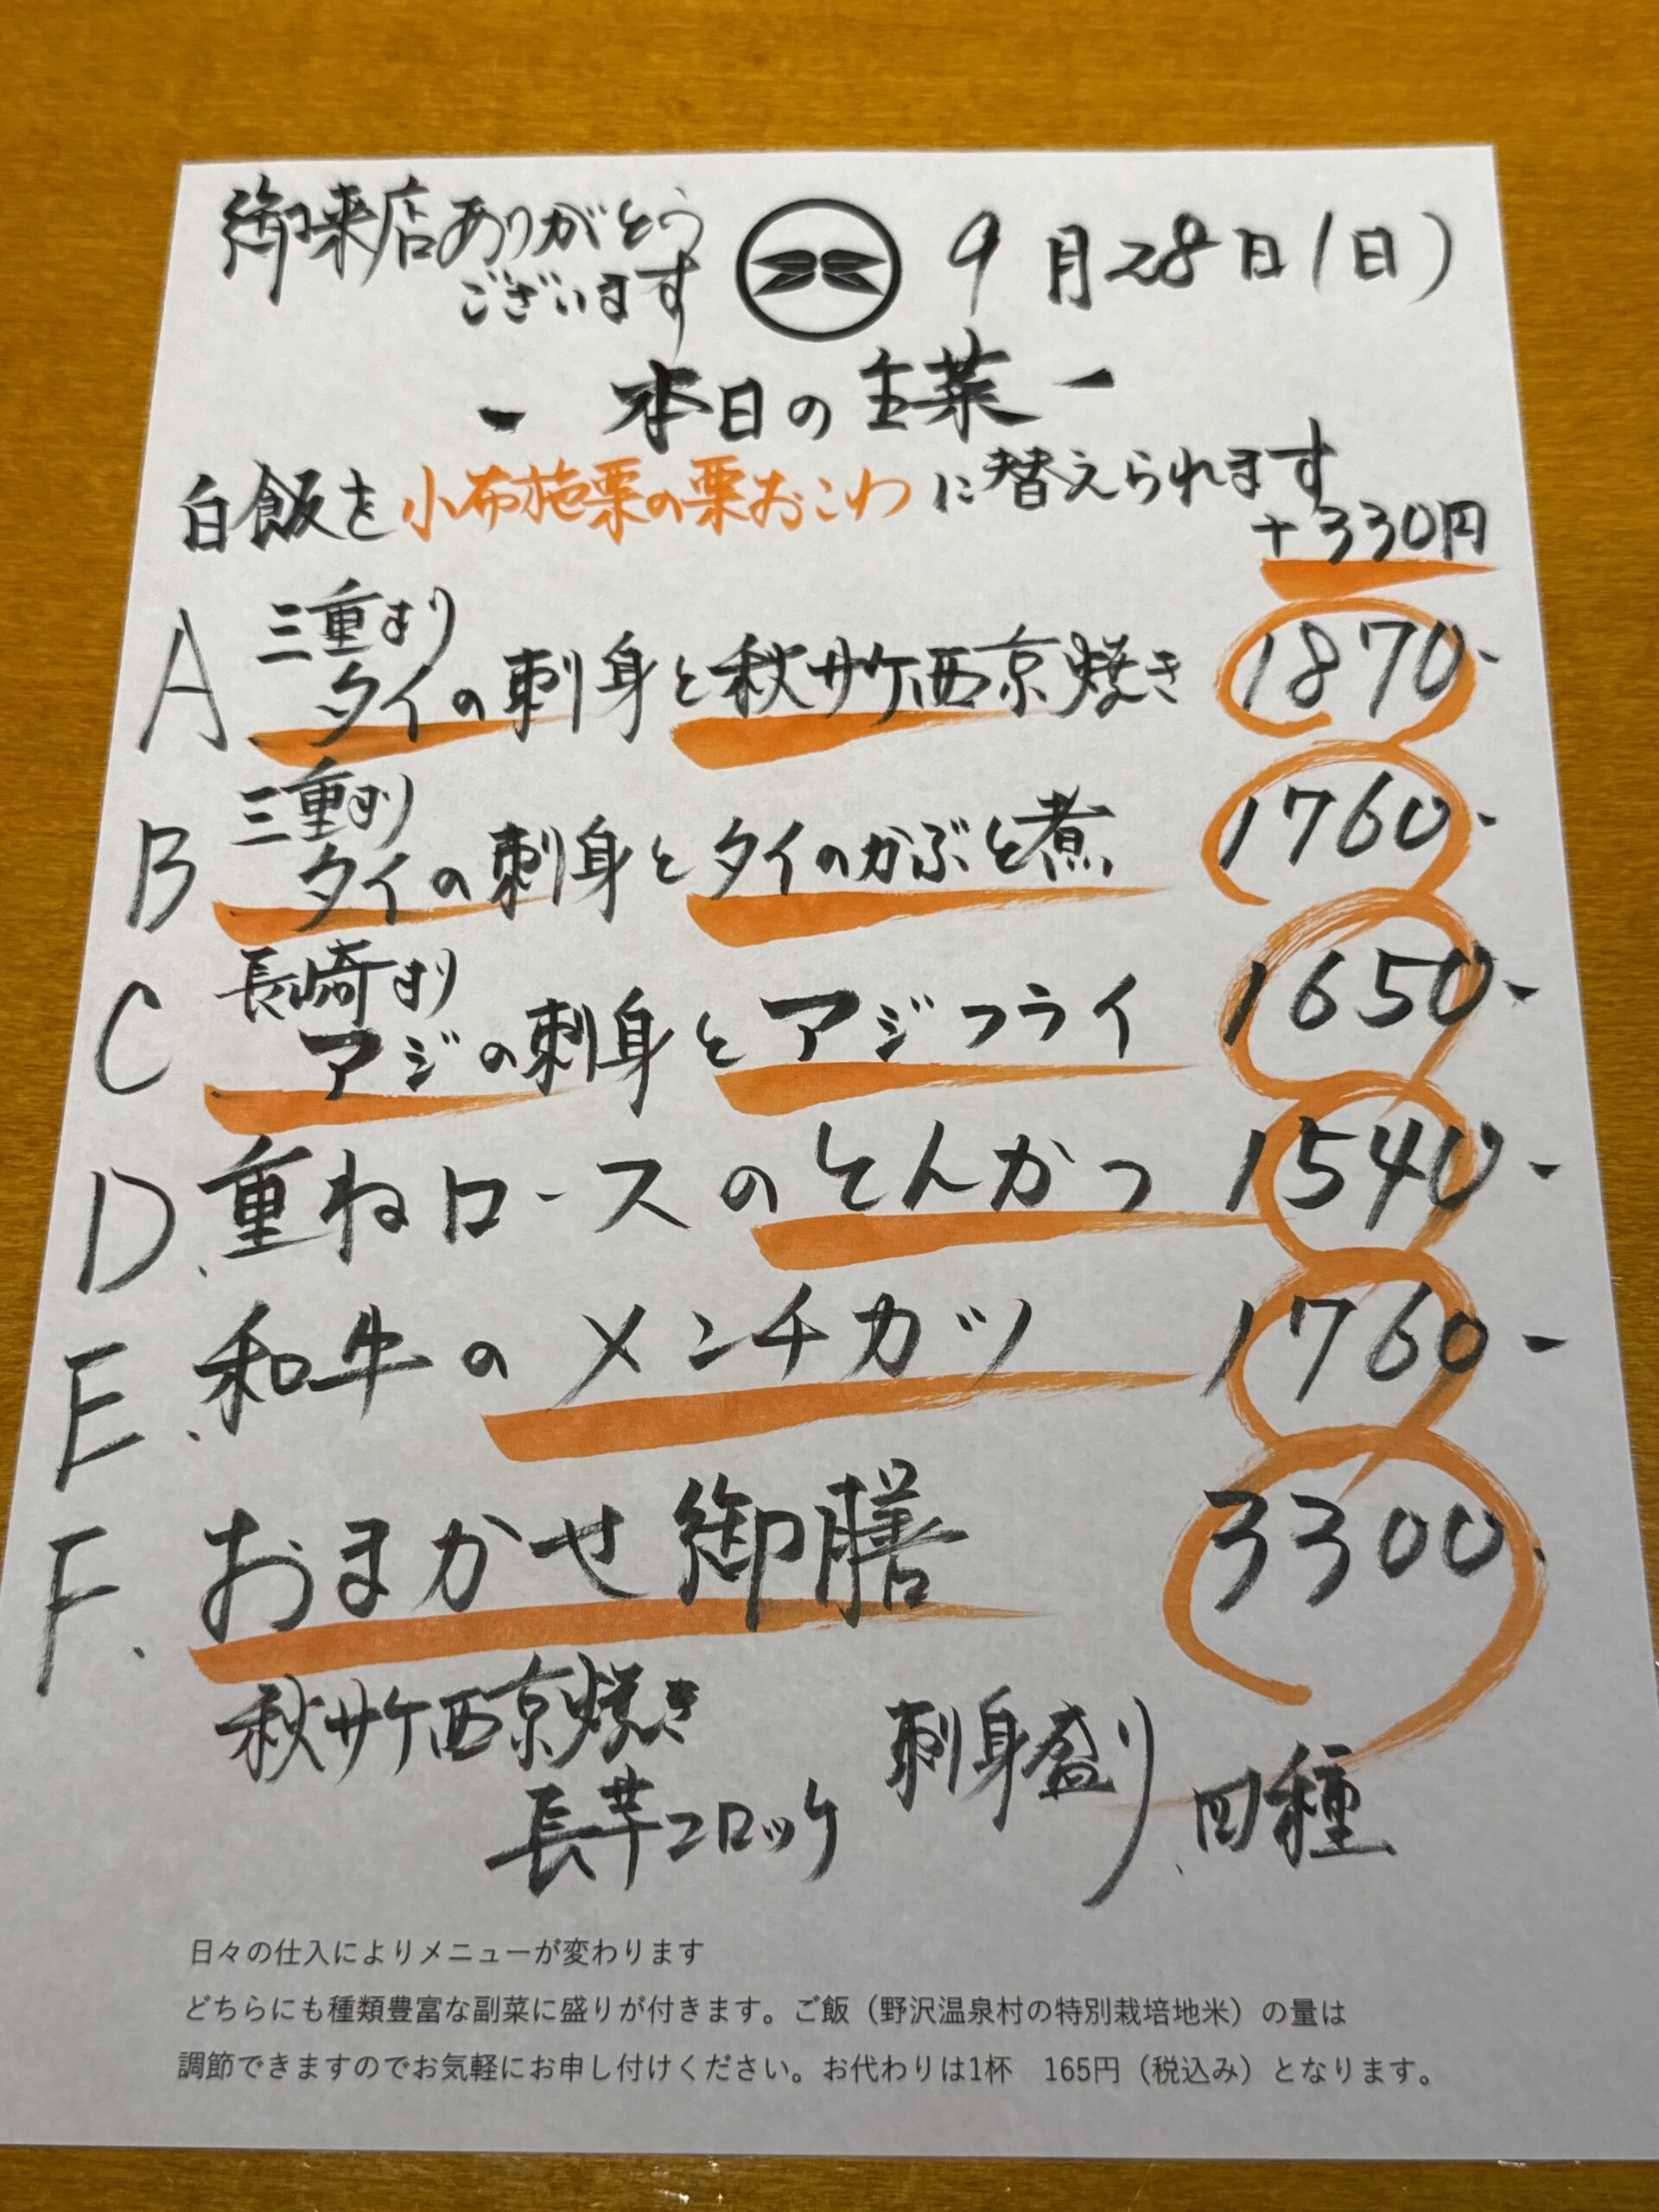 御来店ありがとう
ございます
9月28日(日)
- 本日の主菜 -
白飯を小布施栗の栗おこわに替えられます
+330円
A 三重より
タイの刺身と秋サケ西京焼き 1870-
B 三重より
タイの刺身とタイのかぶと煮 1760-
C 長崎より
アジの刺身とアジフライ 1650-
D. 重ねロースのとんかつ 1540-
E. 和牛のメンチカツ 1760-
F. おまかせ御膳 3300.
秋サケ西京焼き
刺身盛り四種
長芋コロッケ
日々の仕入によりメニューが変わります
どちらにも種類豊富な副菜に盛りが付きます。ご飯（野沢温泉村の特別栽培地米）の量は
調節できますのでお気軽にお申し付けください。お代わりは1杯　165円（税込み）となります。